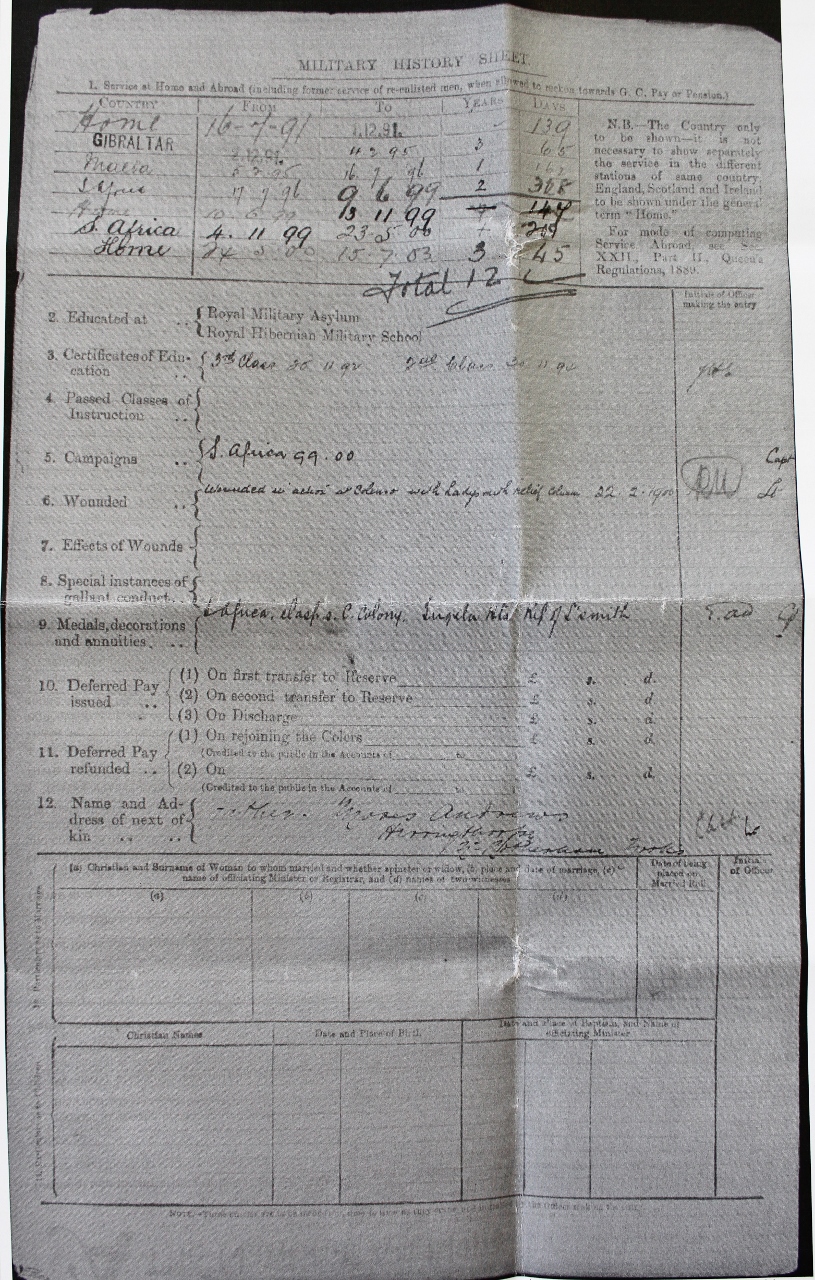 MILITARY HISTORY SHEET.
1. Service at Home and Abroad (including former service of re-enlisted men, when allowed to reckon towards G. C. Pay or Pension.)
COUNTRY FROM TO YEARS DAYS
Home 16-7-91 1.12.91. 139
GIBRALTAR 2.12.91. 4 2 95 3 65
Malta 5 2 95 16 7 96 1
S Africa 17 7 96 9 6 99 2 328
Home 10 6 99 3 11 99 147
S. Africa 4. 11 99 23 5 00
Home 24 5 00 15 7 03 3 45
Total 12
N.B.—The Country only
to be shown—it is not
necessary to show separately
the service in the different
stations of same country.
England, Scotland and Ireland
to be shown under the general
term "Home."
For mode of computing
Service Abroad, see Sec.
XXII., Part II., Queen's
Regulations, 1889.
Initials of Officer
making the entry
2. Educated at .. Royal Military Asylum
Royal Hibernian Military School
3. Certificates of Edu-
cation .. 3rd Class 2nd Class
4. Passed Classes of
Instruction ..
5. Campaigns .. S. Africa 99.00
Capt
6. Wounded .. Wounded in action at Colenso with Ladysmith relief Column 22.2.1900
7. Effects of Wounds
8. Special instances of
gallant conduct..
9. Medals, decorations
and annuities. .. S Africa, clasps C. Colony. Tugela Hts Rlf of L'smith
10. Deferred Pay
issued ..
(1) On first transfer to Reserve £ s. d.
(2) On second transfer to Reserve £ s. d.
(3) On Discharge £ s. d.
11. Deferred Pay
refunded ..
(1) On rejoining the Colors £ s. d.
(Credited to the public in the Accounts of to )
(2) On £ s. d.
(Credited to the public in the Accounts of to )
12. Name and Ad-
dress of next of
kin .. .. Father. Moses Andrews
(a) Christian and Surname of Woman to whom married and whether spinster or widow, (b) place and date of marriage, (c)
name of officiating Minister or Registrar, and (d) names of two witnesses
Date of being
placed on
Married Roll
Initials
of Officer
(a) (b) (c) (d)
Christian Names Date and Place of Birth. Date and Place of Baptism, and Name of
officiating Minister